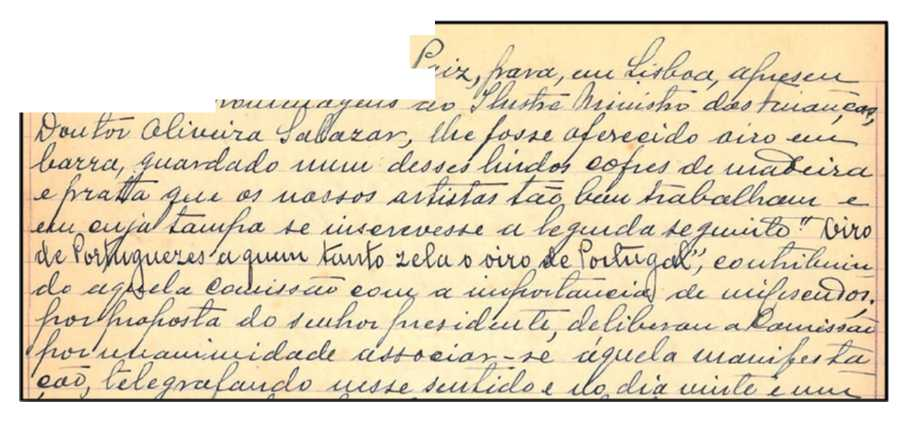 Paiz, para, em Lisboa, apresen
homenagens ao Ilustre Ministro das Finanças,
Doutor Oliveira Salazar, lhe fosse oferecido oiro em
barra, guardado num desses lindos cofres de madeira
e pratta que os nossos artistas tão bem trabalham e
em cuja tampa se inscrevesse a legenda seguinte "Oiro
de Portuguezes a quem tanto zela o oiro de Portugal", contribuin
do aquela comissão com a importancia de mil escudos,
por proposta do senhor presidente, deliberou a Comissão
por unanimidade associar-se áquela manifesta
ção, telegrafando nesse sentido e no dia vinte e um